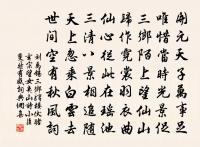 開元天子萬事足
唯惜當時光景促
三鄉陌上望仙山
歸作霓裳羽衣曲
仙心從此在瑤池
三清八景相追隨
天上忽乘白雲去
世間空有秋風詞
劉禹錫三鄉驛樓伏睹
玄宗望女几山詩小臣
斐然有感詞典網集